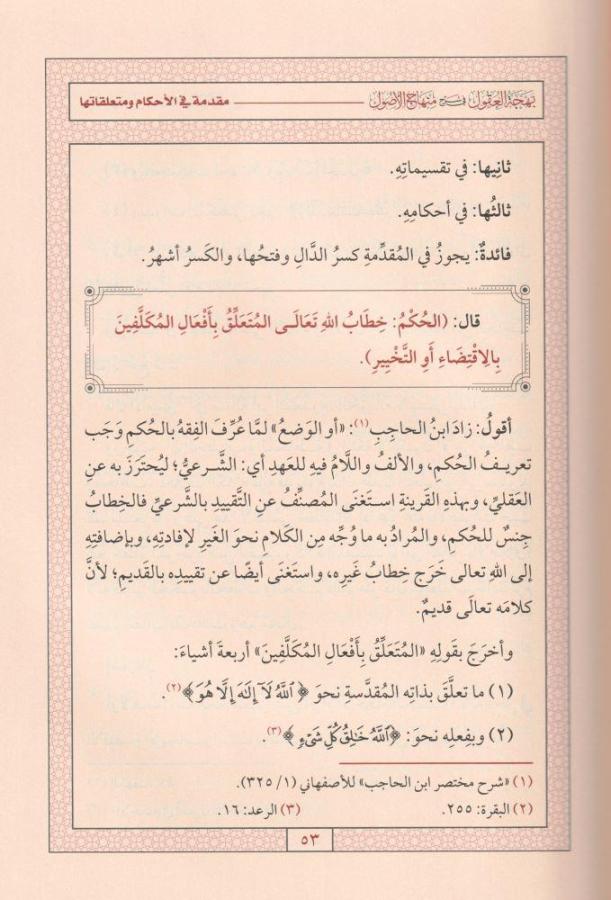 بهجة العقول في شرح منهاج الأصول مقدمة في الأحكام ومتعلقاتها
ثانِيها: في تقسيماتِهِ.
ثالثُها: في أحكامِهِ.
فائدةٌ: يجوزُ في المُقدِّمةِ كسرُ الدَّالِ وفتحُها، والكَسرُ أشهرُ.
قال: (الحُكْمُ: خِطَابُ اللهِ تَعَالَى المُتَعَلِّقُ بِأَفْعَالِ المُكَلَّفِينَ
بِالِاقْتِضَاءِ أَوِ التَّخْيِيرِ).
أقولُ: زادَ ابنُ الحاجِبِ(١): «أو الوَضعُ» لمَّا عُرِّفَ الفِقهُ بالحُكمِ وَجَب
تعريفُ الحُكمِ، والألفُ واللَّامُ فيه للعَهدِ أي: الشَّرعيُّ؛ ليُحترَزَ به عنِ
العَقليِّ، وبهذِهِ القَرينةِ استَغنَى المُصنِّفُ عنِ التَّقييدِ بالشَّرعيِّ فالخِطابُ
جِنسٌ للحُكمِ، والمُرادُ به ما وُجِّه مِن الكَلامِ نحوَ الغَيرِ لإفادتِهِ، وبإضافتِهِ
إلى اللهِ تعالى خَرَج خِطابُ غَيرِه، واستَغنَى أيضًا عن تقييدِه بالقَديمِ؛ لأنَّ
كلامَه تعالَى قديمٌ.
وأخرَجَ بقَولِهِ «المُتَعَلِّقُ بِأَفْعَالِ المُكَلَّفِينَ» أربعةَ أشياءَ:
(١) ما تعلَّقَ بذاتِه المُقدَّسةِ نحوَ ﴿ ٱللَّهُ لَآ إِلَٰهَ إِلَّا هُوَ ﴾(٢).
(٢) وبفِعلِه نحوَ: ﴿ٱللَّهُ خَٰلِقُ كُلِّ شَىْءٍ ﴾(٣).
(١) «شرح مختصر ابن الحاجب» للأصفهاني (١/ ٣٢٥).
(٢) البقرة: ٢٥٥. (٣) الرعد: ١٦.
٥٣